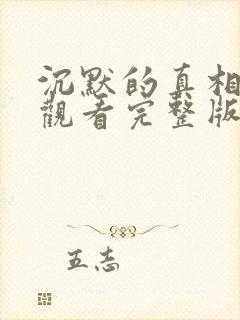 沉默的真相
觀看完整版
五志